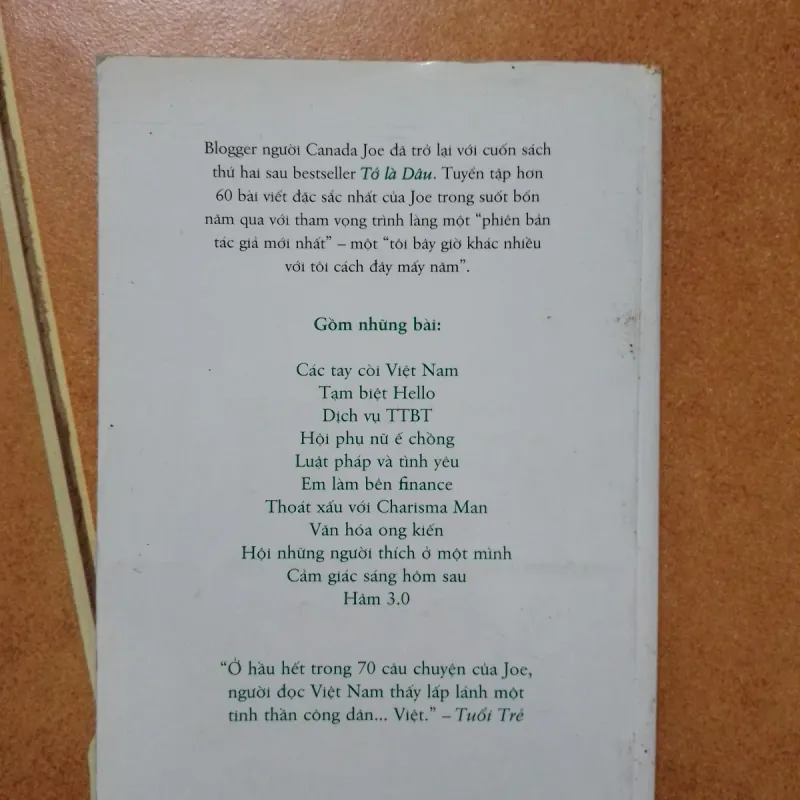 Blogger người Canada Joe đã trở lại với cuốn sách
thứ hai sau bestseller Tớ là Dâu. Tuyển tập hơn
60 bài viết đặc sắc nhất của Joe trong suốt bốn
năm qua với tham vọng trình làng một “phiên bản
tác giả mới nhất” – một “tôi bây giờ khác nhiều
với tôi cách đây mấy năm”.
Gồm những bài:
Các tay còi Việt Nam
Tạm biệt Hello
Dịch vụ TTBT
Hội phụ nữ ế chồng
Luật pháp và tình yêu
Em làm bên finance
Thoát xấu với Charisma Man
Văn hóa ong kiến
Hội những người thích ở một mình
Cảm giác sáng hôm sau
Hâm 3.0
“Ở hầu hết trong 70 câu chuyện của Joe,
người đọc Việt Nam thấy lấp lánh một
tinh thần công dân... Việt.” – Tuổi Trẻ